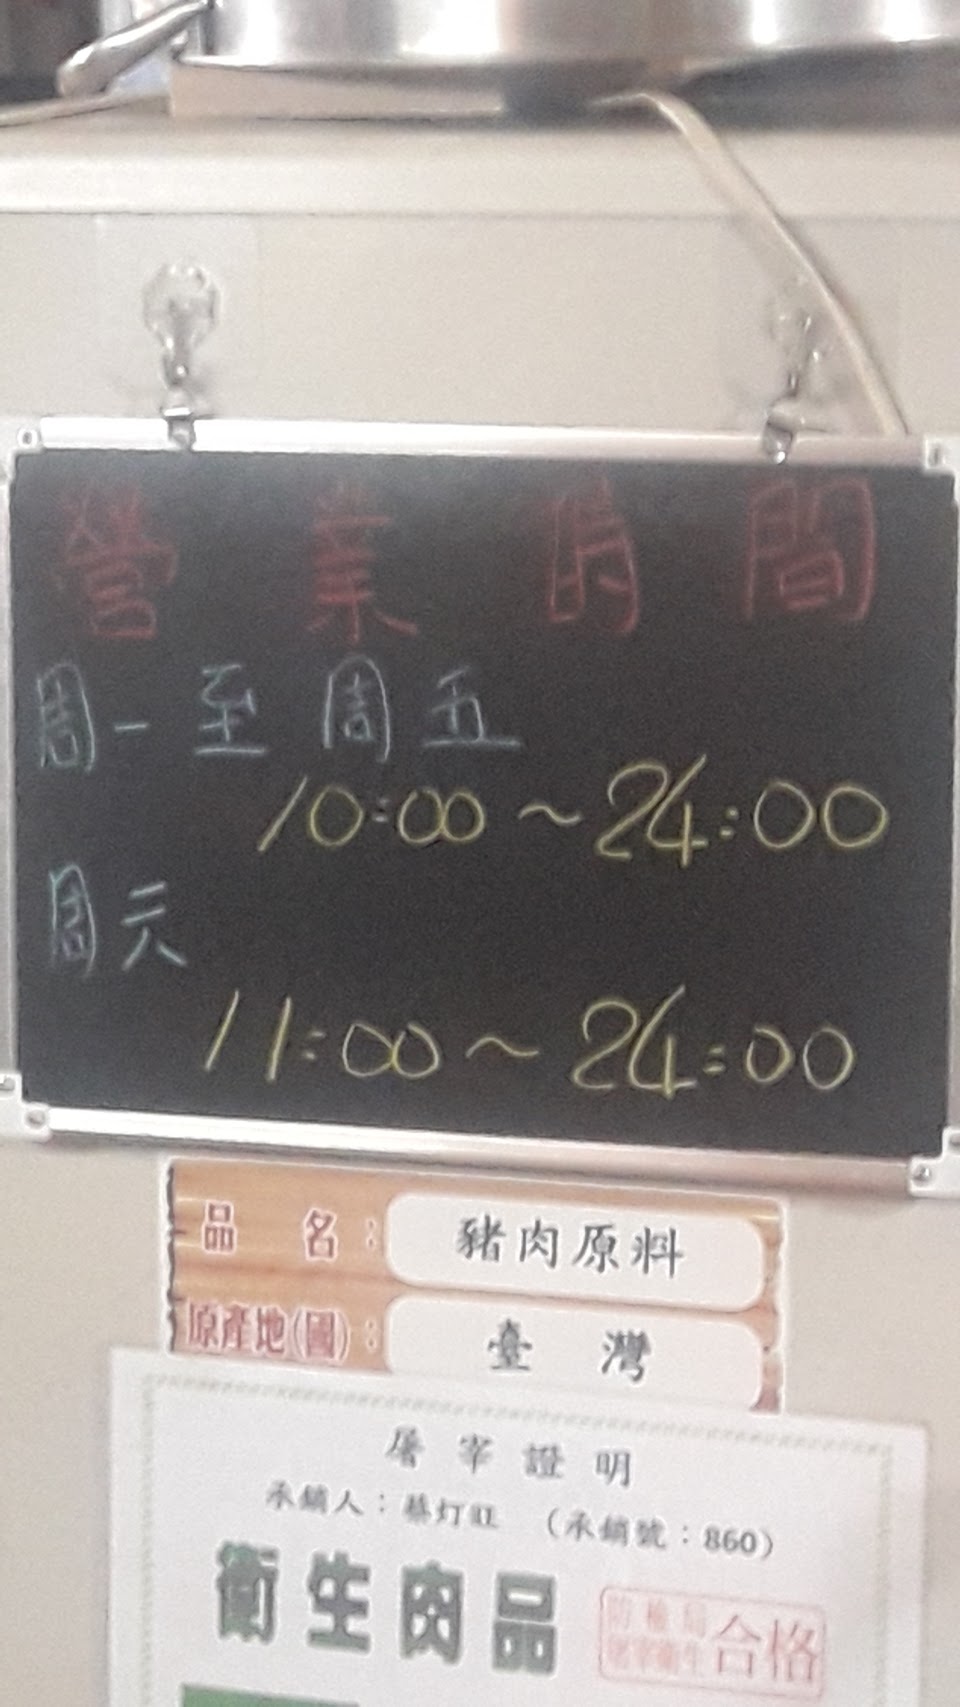 營業時間
周一至周五
10:00~24:00
周天
11:00~24:00
品名：豬肉原料
原產地(國)：臺灣
屠宰證明
承銷人：蔡灯旺（承銷號：860）
衛生肉品
合格